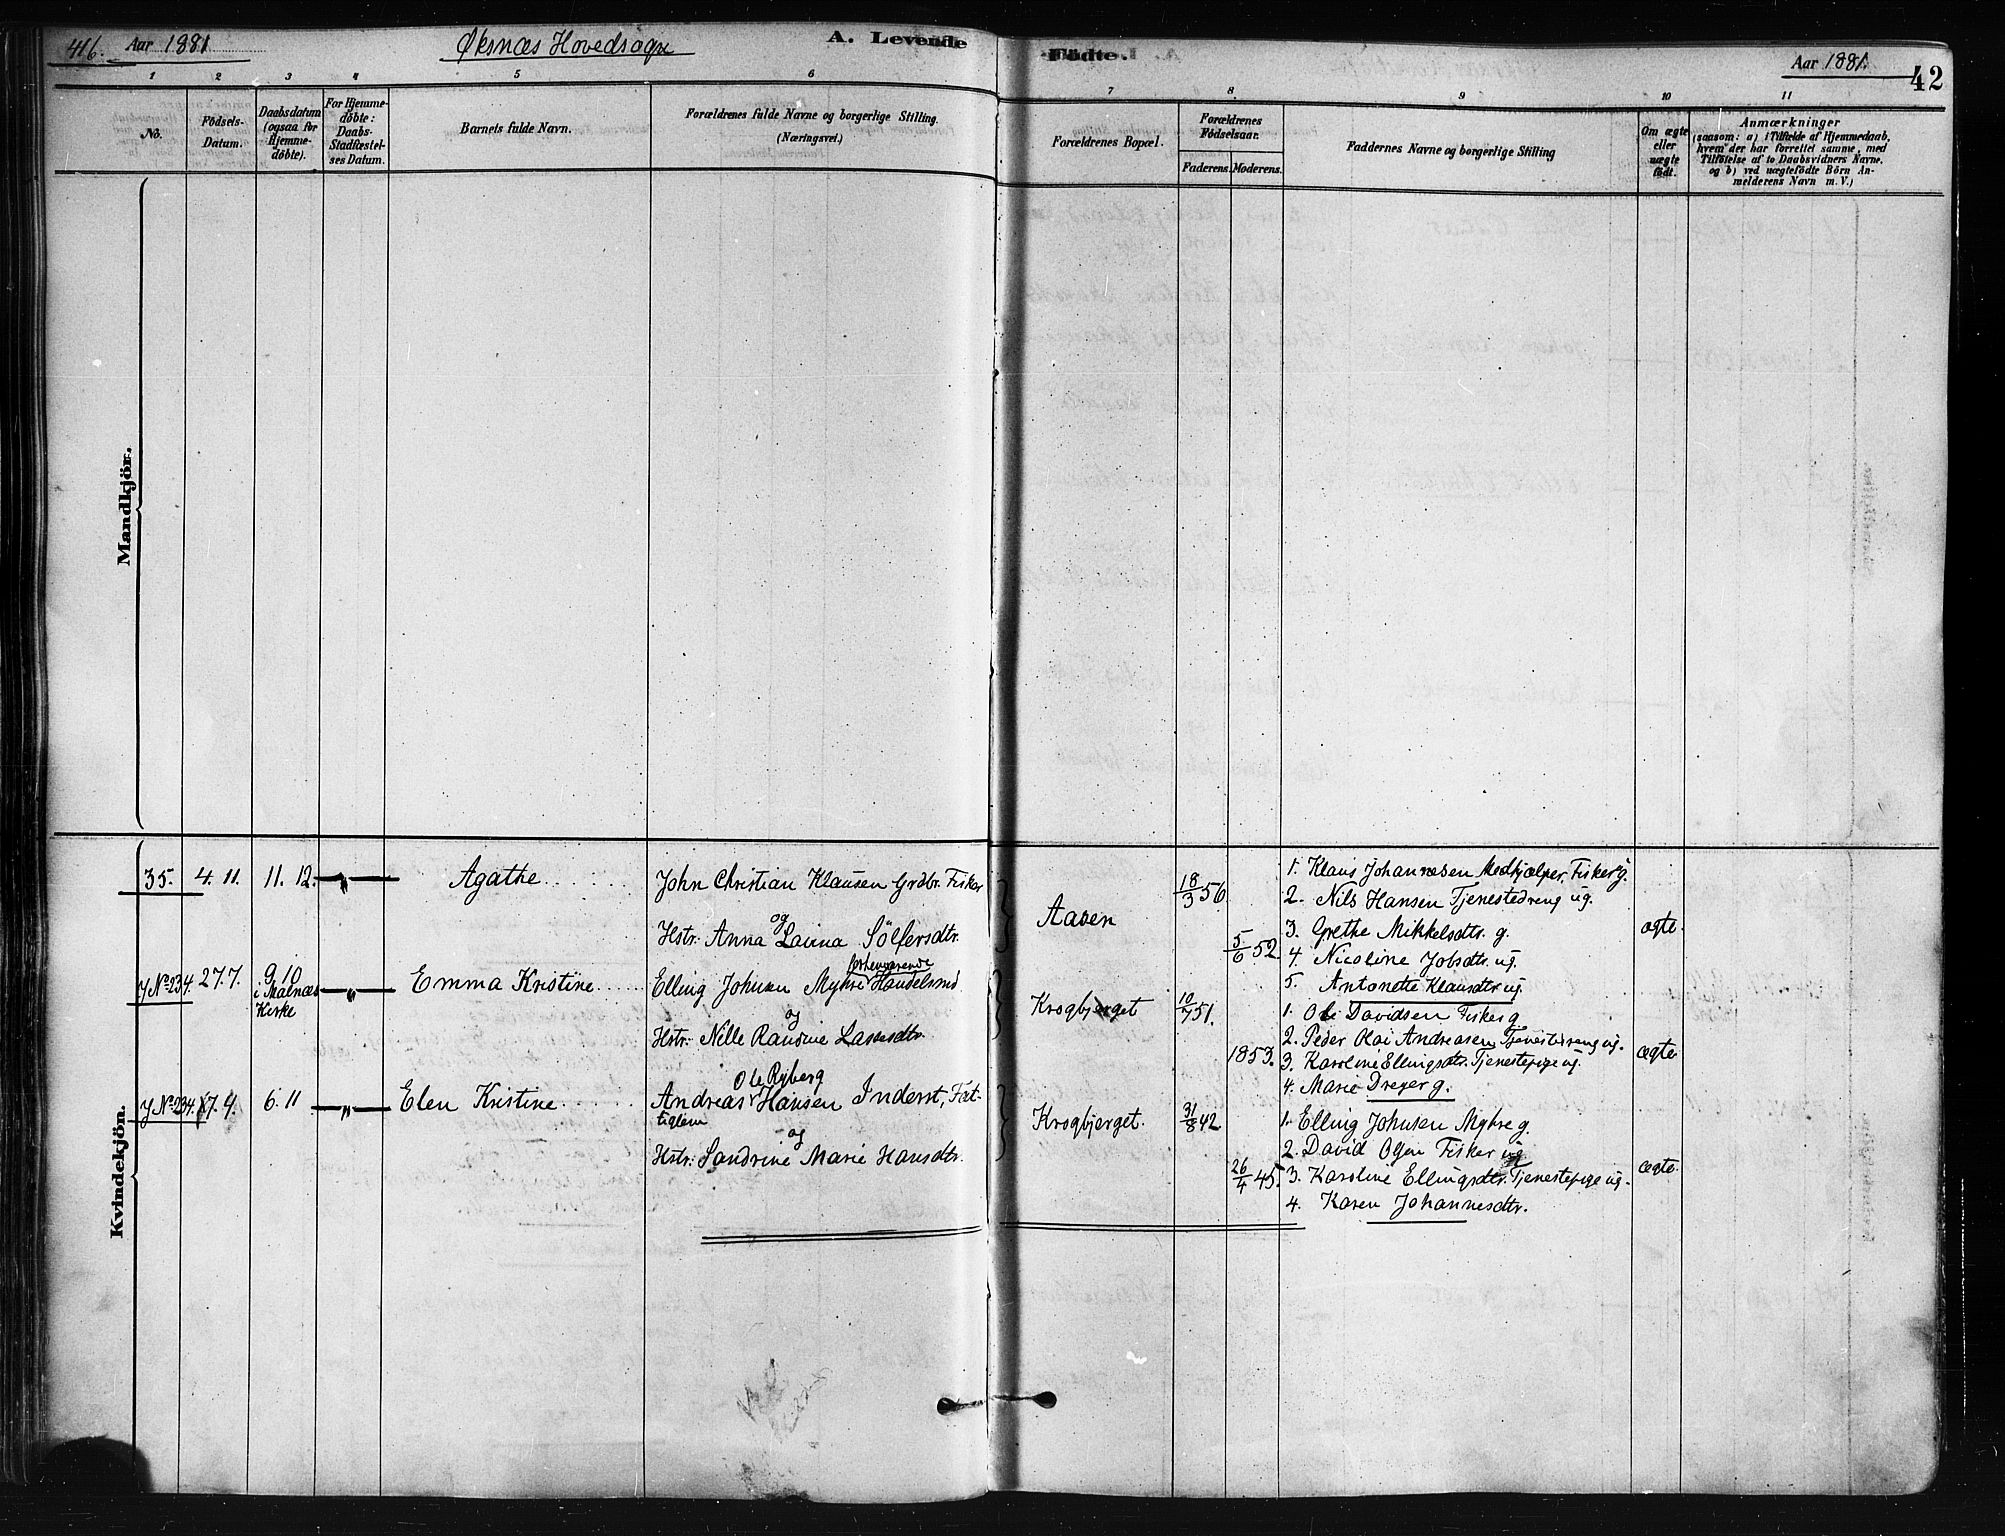 416. Aar 1881 Øksnæs Hovedsogn A. Levende Födte. Aar 1881. 42
1 2 3 4 5 6 7 8 9 10 11
No.
Födsels-
Datum.
Daabsdatum
(ogsaa for
Hjemme-
döbte).
For Hjemme-
döbte:
Daabs-
Stadfæstel-
ses Datum.
Barnets fulde Navn.
Forældrenes fulde Navne og borgerlige Stilling.
(Næringsvei.)
Forældrenes Bopæl.
Forældrenes
Födselsaar.
Faderens. Moderens.
Faddernes Navne og borgerlige Stilling
Om ægte
eller
uægte
födt.
Anmærkninger
(saasom: a) i Tilfælde af Hjemmedaab,
hvem der har forrettet samme, med
Tilföielse af to Daabsvidners Navne.
og b) ved uægtefödte Börn An-
melderens Navn m. V.)
Mandkjön.
Kvindekjön.
35. 4. 11. 11. 12. „ Agathe
John Christian Klausen Grdbr. Fisker
og
Hstr. Anna Laura Sölfersdtr.
Aasen
18/3 56
5/6 52
1. Klaus Johannesen Medhjælper, Fisker g.
2. Nils Hansen Tjenestedreng ug.
3. Grethe Mikkelsdtr. g.
4. Nicoline Jobsdtr. ug.
5. Antonette Klausdtr ug
ægte.
J No 234 27. 7. 9. 10
i Malnæs
Kirke
„ Emma Kristine
forhenværende
Elling Johnsen Myhre Handelsmd.
og
Hstr. Nille Randine Lassesdtr.
Krogbjerget
10/7 51.
1853.
1. Ole Davidsen Fisker g
2. Peder Olai Andreasen Tjenestedreng ug.
3. Karoline Ellingsdtr. Tjenestepige ug
4. Marie Dreyer g.
ægte
J No 234 17. 9. 6. 11 „ Elen Kristine
Ole Ryberg
Andreas Hansen Inderst, Fat-
tiglem
og
Hstr. Sandrine Marie Hansdtr.
Krogbjerget.
31/8 42
26/4 45.
1. Elling Johnsen Myhre g.
2. David Olsen Fisker ug
3. Karoline Ellingsdtr. Tjenestepige ug.
4. Karen Johannesdtr.
ægte.